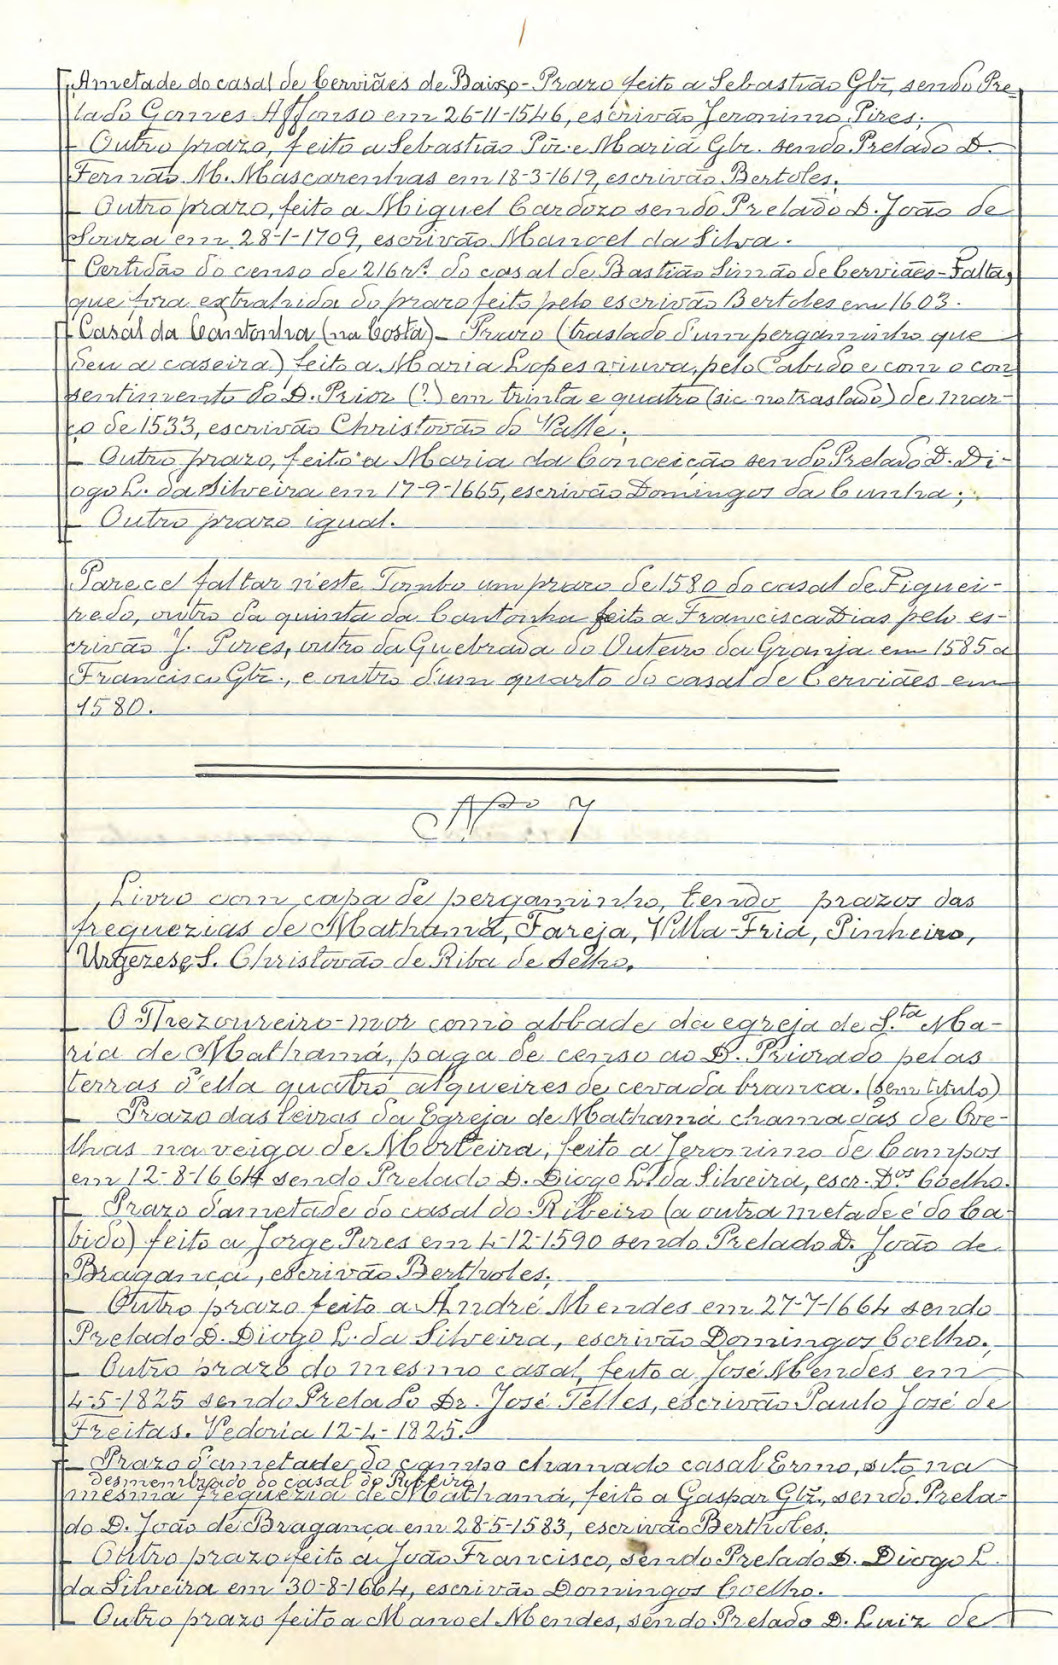 Ametade do casal de Cerviães de Baixo - Prazo feito a Sebastião Glz, sendo Pre-
lado Gomes Affonso em 26-11-1546, escrivão Jeronimo Pires;
- Outro prazo, feito a Sebastião Pir. e Maria Glz. sendo Prelado D.
Fernão M. Mascarenhas em 18-3-1619, escrivão Bertoles;
- Outro prazo, feito a Miguel Cardozo sendo Prelado D. João de
Souza em 28-1-1709, escrivão Manoel da Silva.
Certidão do censo de 216 rs. do casal de Bastião Simão de Cerviães - Falta,
que fora extrahida do prazo feito pelo escrivão Bertoles em 1603.
Casal da Cantonha (na Costa) - Prazo (traslado d'um pergaminho que
deu a caseira) feito a Maria Lopes viuva, pelo Cabido e com o con
sentimento do D. Prior (?) em trinta e quatro (sic no traslado) de mar-
ço de 1533, escrivão Christovão do Valle;
- Outro prazo, feito a Maria da Conceição sendo Prelado D. Di-
ogo L. da Silveira em 17-9-1665, escrivão Domingos da Cunha;
- Outro prazo igual.
Parece faltar n'este Tombo um prazo de 1580 do casal de Figuei-
redo, outro da quinta da Cantonha feito a Francisca Dias pelo es-
crivão J. Pires, outro da Quebrada do Outeiro da Granja em 1585 a
Francisco Glz., e outro d'um quarto do casal de Cerviães em
1580.
Nº 7
Livro com capa de pergaminho, tendo prazos das
freguezias de Mathamá, Fareja, Villa-Fria, Pinheiro,
Urgezes e S. Christovão de Riba de Selho.
- O Thezoureiro-mor como abbade da egreja de S.ta Ma-
ria de Mathamá, paga de censo ao D. Priorado pelas
terras d'ella quatro alqueires de cevada branca. (Sem titulo)
- Prazo das leiras da Egreja de Mathamá chamadas de Ove-
lhas na veiga de Morteira, feito a Jeronimo de Campos
em 12-8-1664 sendo Prelado D. Diogo L. da Silveira, escr. D.os Coelho.
- Prazo d'ametade do casal do Ribeiro (a outra metade é do Ca-
bido) feito a Jorge Pires em 4-12-1590 sendo Prelado D. João de
Bragança, escrivão Bertholes;
- Outro prazo feito a André Mendes em 27-7-1664 sendo
Prelado D. Diogo L. da Silveira, escrivão Domingos Coelho;
- Outro prazo do mesmo casal, feito a José Mendes em
4-5-1825 sendo Prelado Dr. José Telles, escrivão Paulo José de
Freitas. Vedoria 12-4-1825.
- Prazo d'ametade do campo chamado casal Ermo, sito na
desmembrado do casal do Ribeiro
mesma freguezia de Mathamá, feito a Gaspar Glz., sendo Prela-
do D. João de Bragança em 28-5-1583, escrivão Bertholes;
- Outro prazo feito a João Francisco, sendo Prelado D. Diogo L.
da Silveira em 30-8-1664, escrivão Domingos Coelho.
- Outro prazo feito a Manoel Mendes, sendo Prelado D. Luiz de